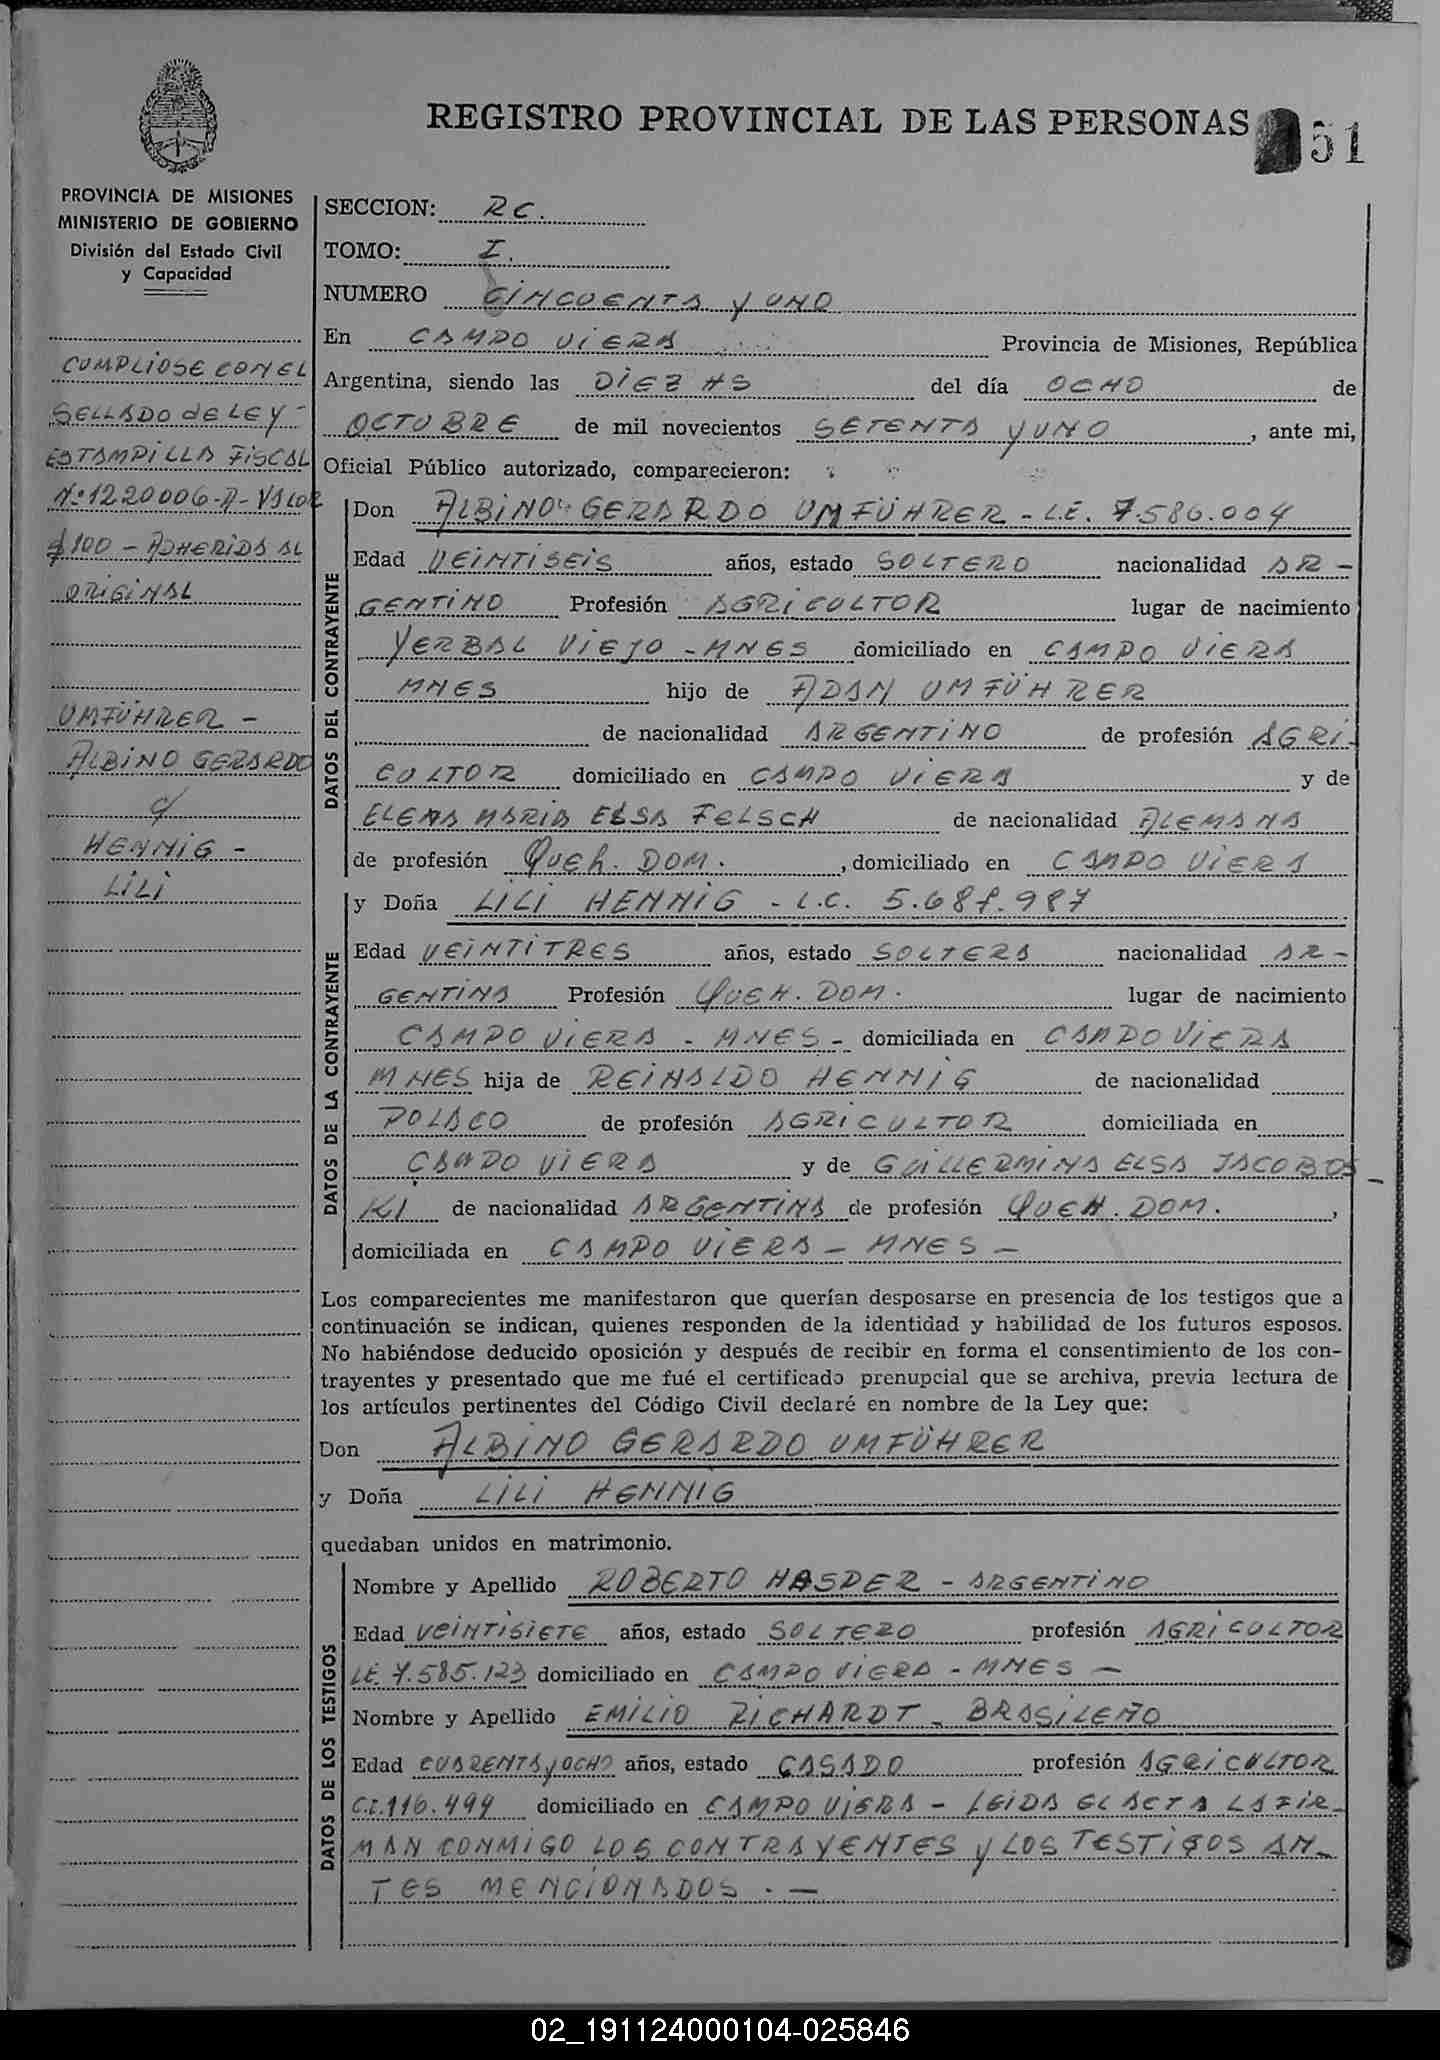 REGISTRO PROVINCIAL DE LAS PERSONAS
51
PROVINCIA DE MISIONES
MINISTERIO DE GOBIERNO
División del Estado Civil
y Capacidad
CUMPLIOSE CON EL
SELLADO de LEY-
ESTAMPILLA FISCAL
Nº 1220006-A-VALOR
$100 - ADHERIDA AL
ORIGINAL
UMFÜHRER -
ALBINO GERARDO
c/
HENNIG -
LILI
SECCION: RC.
TOMO: I.
NUMERO CINCUENTA y UNO
En CAMPO VIERA Provincia de Misiones, República
Argentina, siendo las DIEZ HS del día OCHO de
OCTUBRE de mil novecientos SETENTA y UNO, ante mi,
Oficial Público autorizado, comparecieron:
DATOS DEL CONTRAYENTE
Don ALBINO GERARDO UMFÜHRER - L.E. 7.580.004
Edad VEINTISEIS años, estado SOLTERO nacionalidad AR-
GENTINO Profesión AGRICULTOR lugar de nacimiento
YERBAL VIEJO - MNES domiciliado en CAMPO VIERA
MNES hijo de ADAN UMFÜHRER
de nacionalidad ARGENTINO de profesión AGRI-
CULTOR domiciliado en CAMPO VIERA y de
ELENA MARIA ELSA FELSCH de nacionalidad ALEMANA
de profesión QUEH. DOM. , domiciliado en CAMPO VIERA
DATOS DE LA CONTRAYENTE
y Doña LILI HENNIG - L.C. 5.687.987
Edad VEINTITRES años, estado SOLTERA nacionalidad AR-
GENTINA Profesión QUEH. DOM. lugar de nacimiento
CAMPO VIERA - MNES - domiciliada en CAMPO VIERA
MNES hija de REINALDO HENNIG de nacionalidad
POLACO de profesión AGRICULTOR domiciliada en
CAMPO VIERA y de GUILLERMINA ELSA JACOBOS-
KI de nacionalidad ARGENTINA de profesión QUEH. DOM. ,
domiciliada en CAMPO VIERA - MNES -
Los comparecientes me manifestaron que querían desposarse en presencia de los testigos que a
continuación se indican, quienes responden de la identidad y habilidad de los futuros esposos.
No habiéndose deducido oposición y después de recibir en forma el consentimiento de los con-
trayentes y presentado que me fué el certificado prenupcial que se archiva, previa lectura de
los artículos pertinentes del Código Civil declaré en nombre de la Ley que:
Don ALBINO GERARDO UMFÜHRER
y Doña LILI HENNIG
quedaban unidos en matrimonio.
DATOS DE LOS TESTIGOS
Nombre y Apellido ROBERTO HASPER - ARGENTINO
Edad VEINTISIETE años, estado SOLTERO profesión AGRICULTOR
L.E. 7.585.123 domiciliado en CAMPO VIERA - MNES -
Nombre y Apellido EMILIO RICHARDT - BRASILEÑO
Edad CUARENTA y OCHO años, estado CASADO profesión AGRICULTOR
C.I. 116.499 domiciliado en CAMPO VIERA - LEIDA EL ACTA LA FIR-
MAN CONMIGO LOS CONTRAYENTES y LOS TESTIGOS AN-
TES MENCIONADOS. -
02_191124000104-025846